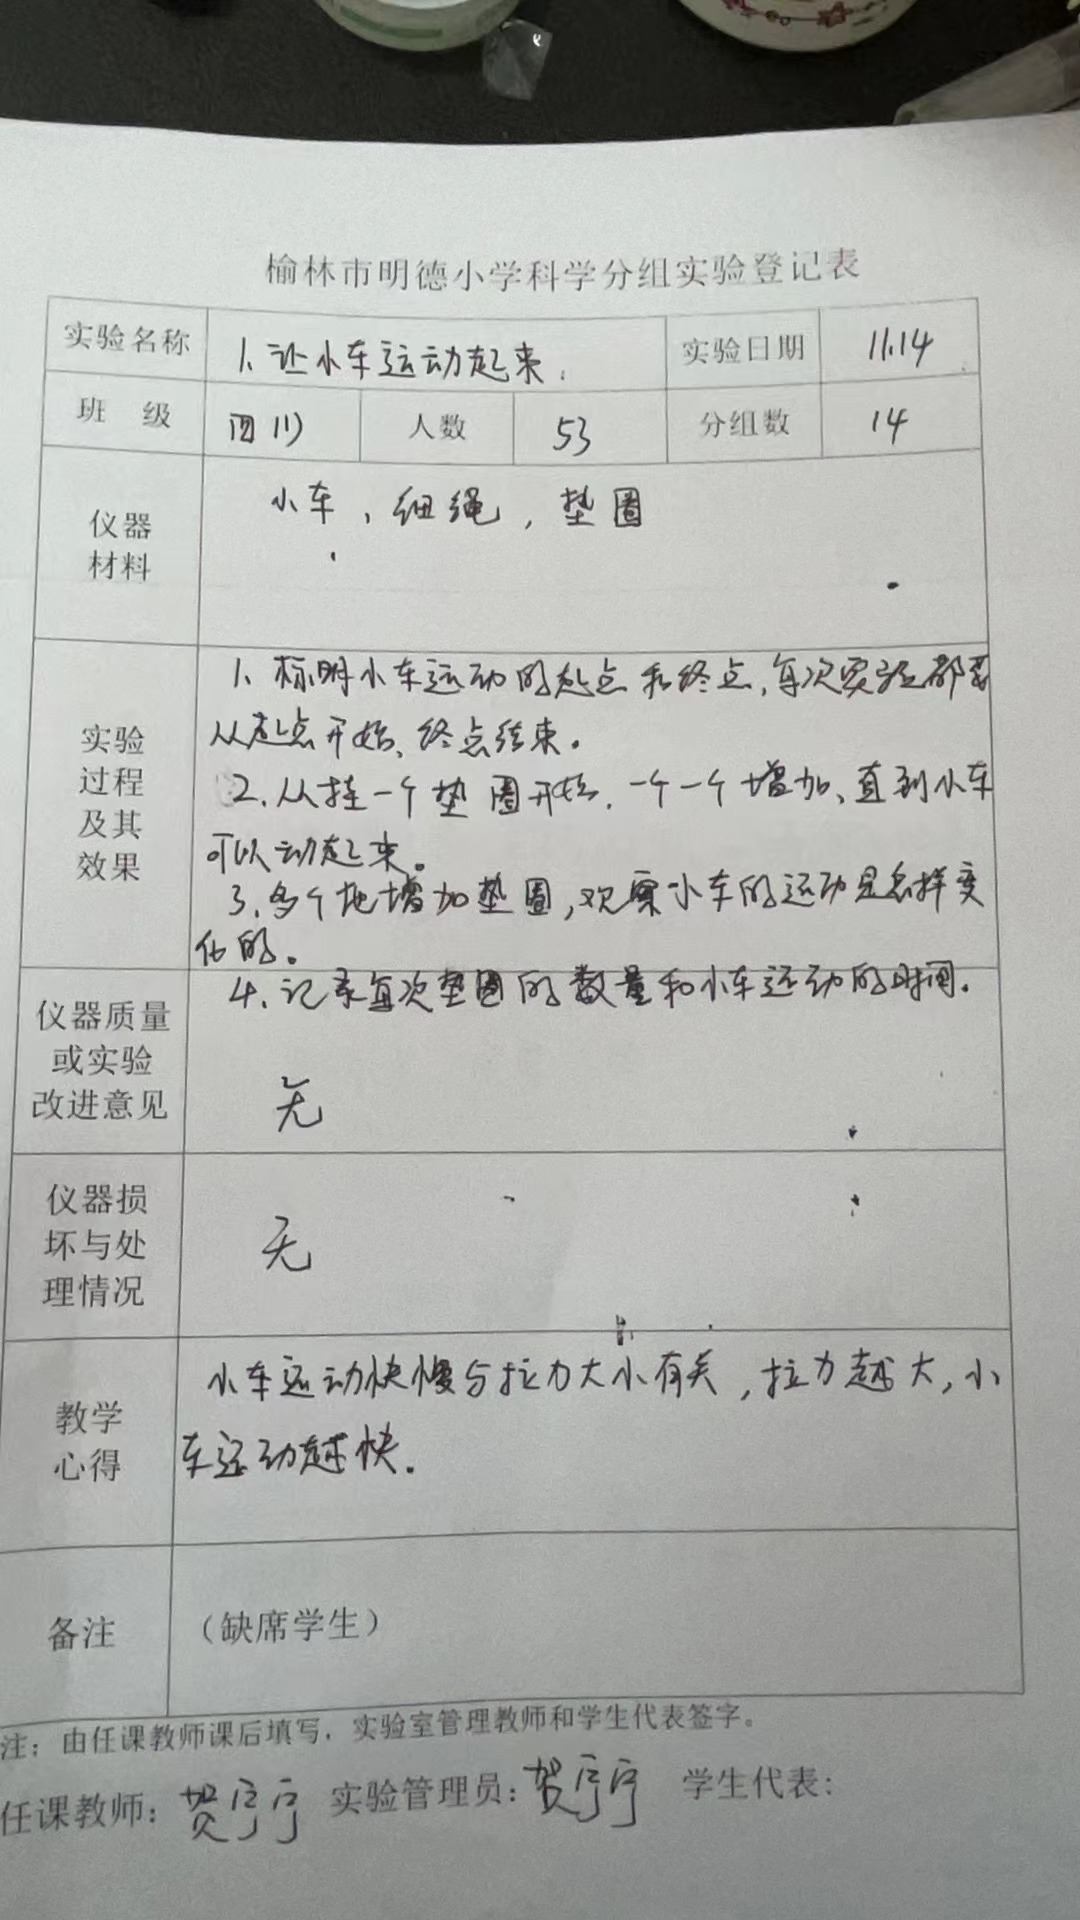 榆林市明德小学科学分组实验登记表
实验名称 1.让小车运动起来. 实验日期 11.14
班 级 四(1) 人数 53 分组数 14
仪器
材料
小车,细绳,垫圈
实验
过程
及其
效果
1.标明小车运动的起点和终点,每次实验都要
从起点开始、终点结束。
2.从挂一个垫圈开始,一个一个增加、直到小车
可以动起来。
3.多个地增加垫圈,观察小车的运动是怎样变
化的。
4.记录每次垫圈的数量和小车运动的时间.
仪器质量
或实验
改进意见
无
仪器损
坏与处
理情况
无
教学
心得
小车运动快慢与拉力大小有关,拉力越大,小
车运动越快.
备注
(缺席学生)
注:由任课教师课后填写,实验室管理教师和学生代表签字。
任课教师: 实验管理员: 学生代表: